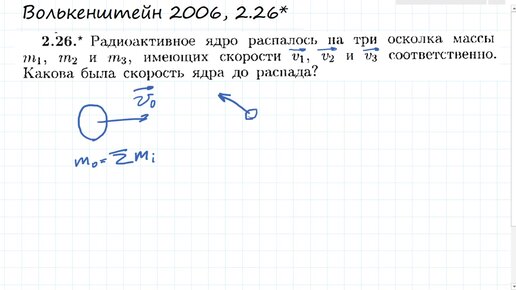 Волькенштейн 2006, 2.26*
2.26.* Радиоактивное ядро распалось на три осколка массы
m₁, m₂ и m₃, имеющих скорости v₁, v₂ и v₃ соответственно.
Какова была скорость ядра до распада?
v₀
m₀ = Σ mᵢ